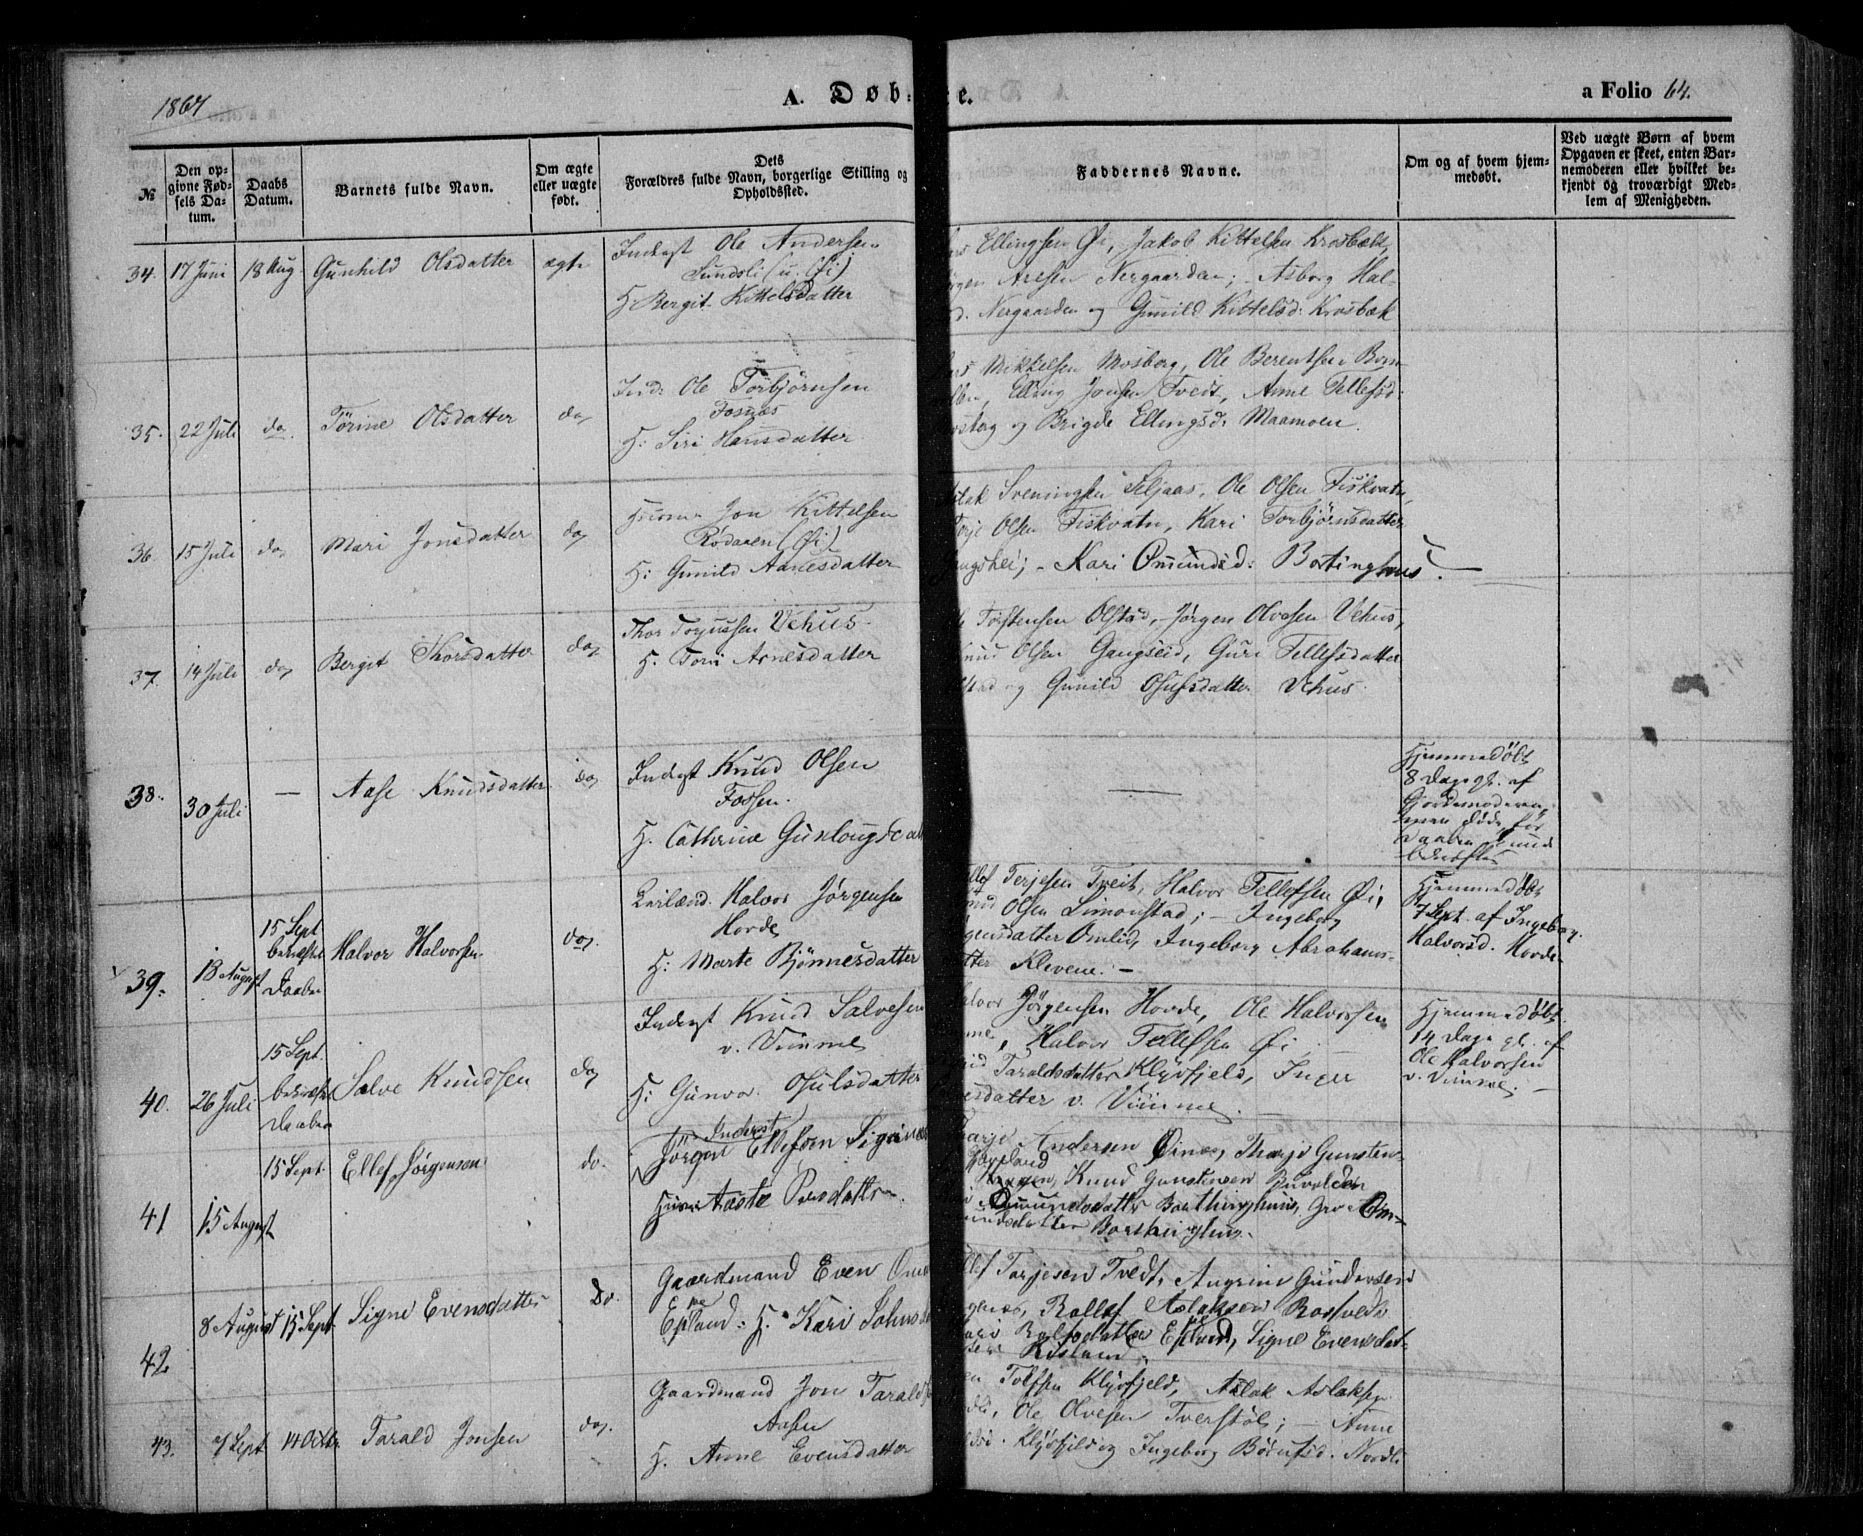 1867
A. Døb= e.
a Folio 64.
№
Den op-
givne Fød-
sels Da-
tum.
Daabs
Datum.
Barnets fulde Navn.
Om ægte
eller uægte
født.
Dets
Forældres fulde Navn, borgerlige Stilling og
Opholdssted.
Faddernes Navne.
Om og af hvem hjem-
medøbt.
Ved uægte Børn af hvem
Opgaven er skeet, enten Bar-
nemoderen eller hvilket be-
kjendt og troværdigt Med-
lem af Menigheden.
34. 17 Juni 18 Aug Gunhild Olsdatter ægte
Inderst Ole Andersen
Sundsli (u. Øi)
H Bergit Kittelsdatter
Ellingsen Øi, Jakob Kittelsen Krosbæk,
Aresen Nergaarden; Asborg Hal-
d. Nergaarden og Gunild Kittelsd: Krosbæk
35. 22 Juli do Tørine Olsdatter do
Ind: Ole Torbjørnsen
Fosnæs
H: Siri Hansdatter
Mikkelsen Mosberg, Ole Berentsen
Elling Jonsen Tveit, Anne Tellefsd:
og Brigde Ellingsd: Maamoen.
36. 15 Juli do Mari Jonsdatter do
Huusm Jon Kittelsen
Rødaaen (Øi)
H: Gunild Aanesdatter
Sveningsen Seljaas, Ole Olsen Fiskvatn,
Olsen Fiskvatn, Kari Torbjørnsdatter
Kari Omundsd: Bortinghuus.
37. 14 Juli do Bergit Thorsdatter do
Thor Torjussen Vehus
H. Toni Arnesdatter
Torstensen Olstad, Jørgen Olvesen Vehus,
Olsen Gangseid, Guri Tellefsdatter
og Gunild Osulsdatter Vehus.
38. 30 Juli — Aase Knudsdatter do
Inderst Knud Olsen
Fossen.
H. Cathrine Gunlougsdat
—
Hjemmedøbt
8 Dage gl. af
Gjordemoderen,
døde før
Daaben kunde
bekræftes
39. 13 August 15 Sept
bekræftet
Daaben
Halvor Halvorsen do.
Halvor Jørgensen
Hovde
H: Marte Bjønnesdatter
Terjesen Tveit, Halvor Tellefsen Øi,
Olsen Simonstad; — Ingeborg
Omlid, Ingeborg Abrahams-
Klevene. —
Hjemmedøbt
7 Sept. af Ingeborg
Halvorsd. Hovde
40. 26 Juli 15 Sept.
bekræftet
Daaben
Salve Knudsen do
Inderst Knud Salvesen
v. Vimme
H: Gunvor Osulsdatter
Jørgensen Hovde, Ole Halvorsen
Halvor Tellefsen Øi —
Taraldsdatter Klyvfjeld, Inger
v. Vimme. —
Hjemmedøbt
14 Dage gl. af
Ole Halvorsen
v. Vimme. —
41 15 August 15 Sept. Ellef Jørgensen do.
Inderst
Jørgen Ellefsen
Aaste Persdatter.
Andersen Øinæs, Tharje Gunsten-
Knud Gunstensen
Omundsdatter Borthinghuus, Gro Om-
undsdatter Borthinghus.
42 8 August 15 Sept. Signe Evensdatter Do.
Gaardmand Even
Espeland. H. Kari
Tarjesen Tvedt,
Rallef Aslaksen Rostvedt
Signe Evensdat-
43. 7 Sept 14 Octbr Tarald Jonsen do.
Gaardmand Jon Tarald
Aasen
H. Anne Evensdatter
Tolfsen Klyvfjeld, Aslak Aslaksen
Ole Olvesen Tverstøl; — Anne
Klyvfjeld og Ingeborg